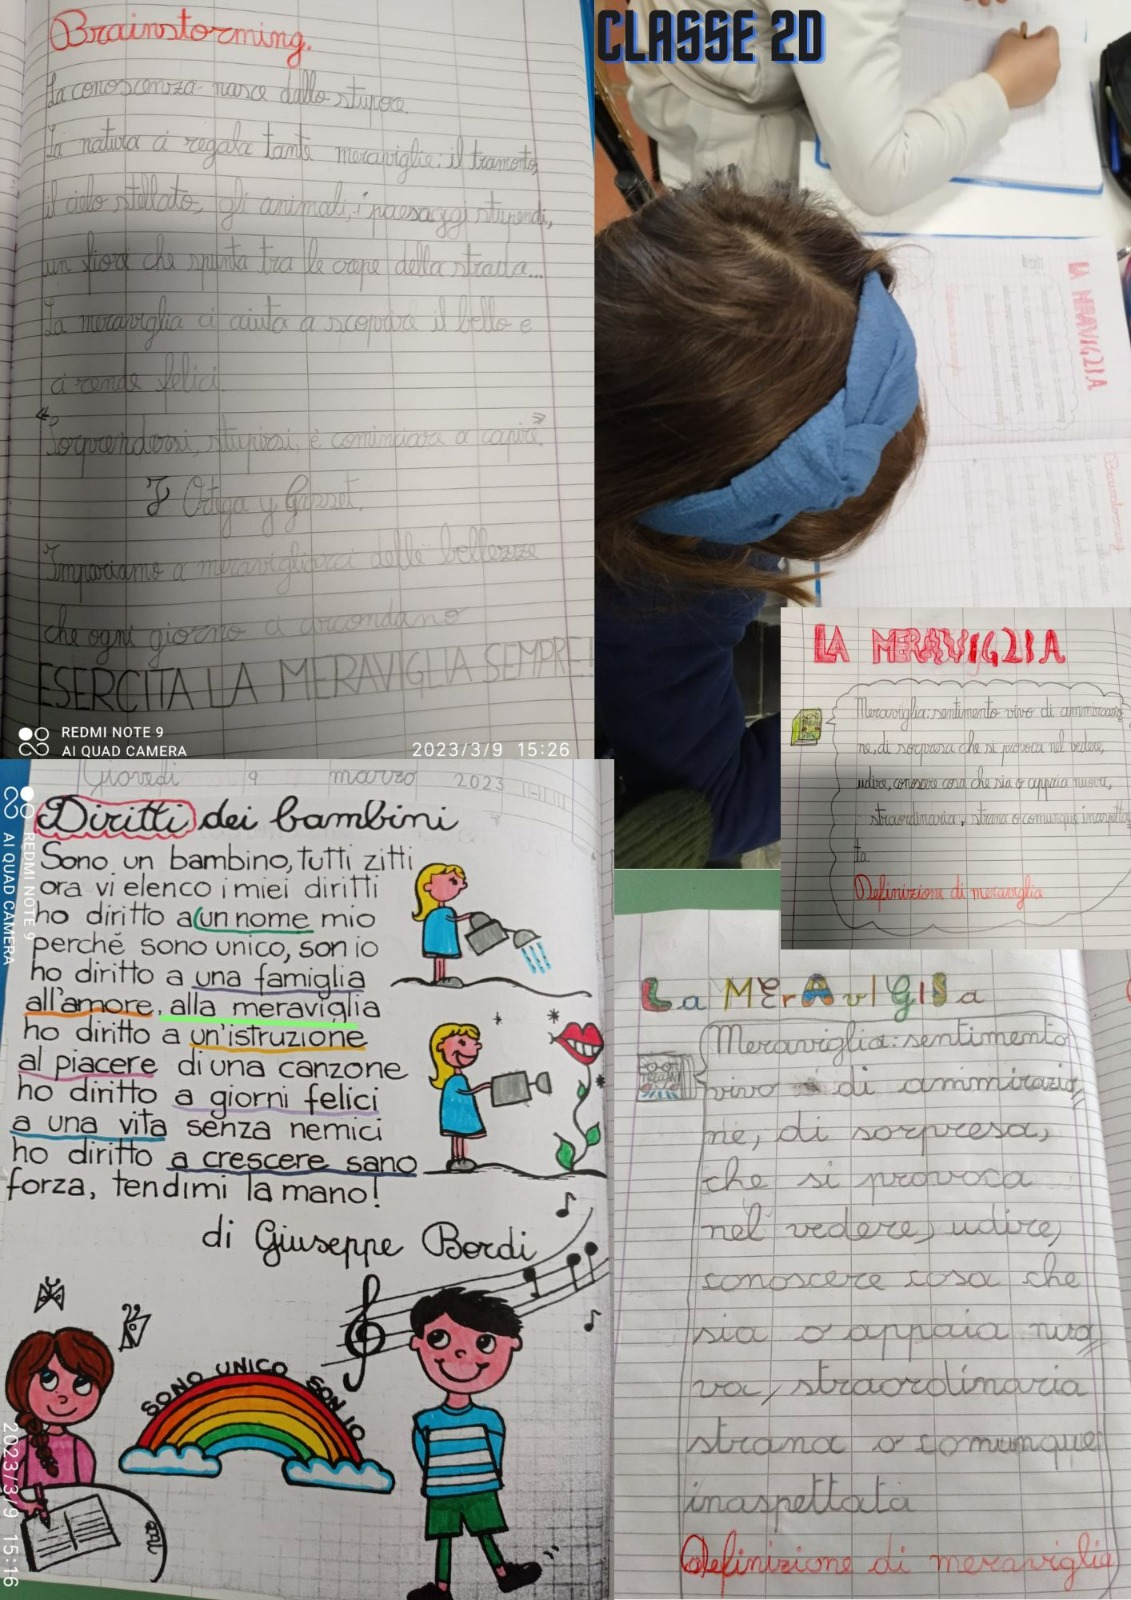 Brainstorming.
La conoscenza nasce dallo stupore.
La natura ci regala tante meraviglie: il tramonto,
il cielo stellato, gli animali, i paesaggi stupendi,
un fiore che spunta tra le crepe della strada...
La meraviglia ci aiuta a scoprire il bello e
ci rende felici.
"Sorprendersi, stupirsi, è cominciare a capire".
J Ortega y Gasset.
Impariamo a meravigliarci delle bellezze
che ogni giorno ci circondano
ESERCITA LA MERAVIGLIA SEMPRE!
REDMI NOTE 9
AI QUAD CAMERA
2023/3/9 15:26
CLASSE 2D
LA MERAVIGLIA
Brainstorming
LA MERAVIGLIA
Meraviglia: sentimento vivo di ammirazio
ne, di sorpresa che si provoca nel vedere,
udire, conoscere cosa che sia o appaia nuova,
straordinaria, strana o comunque inaspetta
ta.
Definizione di meraviglia
Giovedì 9 marzo 2023
Diritti dei bambini
Sono un bambino, tutti zitti
ora vi elenco i miei diritti
ho diritto a un nome mio
perché sono unico, son io
ho diritto a una famiglia
all'amore, alla meraviglia
ho diritto a un'istruzione
al piacere di una canzone
ho diritto a giorni felici
a una vita senza nemici
ho diritto a crescere sano
forza, tendimi la mano!
di Giuseppe Bordi
SONO UNICO SON IO
REDMI NOTE 9
AI QUAD CAMERA
2023/3/9 15:16
La MErAvIGlIa
Meraviglia: sentimento
vivo di ammirazio
ne, di sorpresa,
che si provoca
nel vedere, udire,
conoscere cosa che
sia o appaia nuo
va, straordinaria
strana o comunque
inaspettata
Definizione di meraviglia